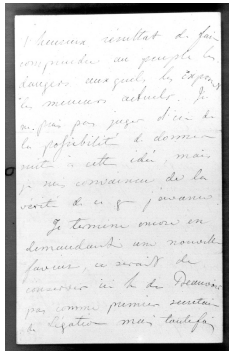 l'heureux résultat de faire
comprendre au peuple les
dangers auxquels les exposent
les meneurs actuels. Je
ne puis pas juger d'ici de
la possibilité de donner
suite à cette idée, mais
je suis convaincu de la
vérité de ce que j'avance.
Je termine encore en
demandant une nouvelle
faveur, ce serait de
conserver ici le de Beauvais
pas comme premier secrétaire
de légation mais toutefois